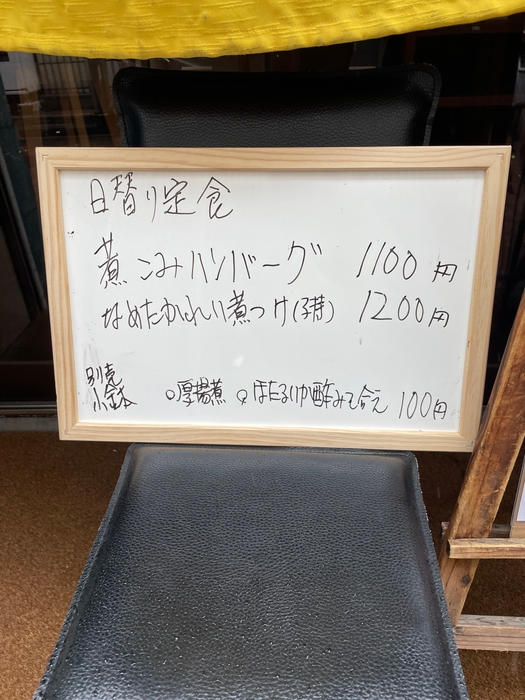 日替り定食
煮こみハンバーグ 1100円
なめたかれい煮つけ(子持) 1200円
別売小鉢 ○厚揚煮 ○ほたるいか酢みそ合え 100円